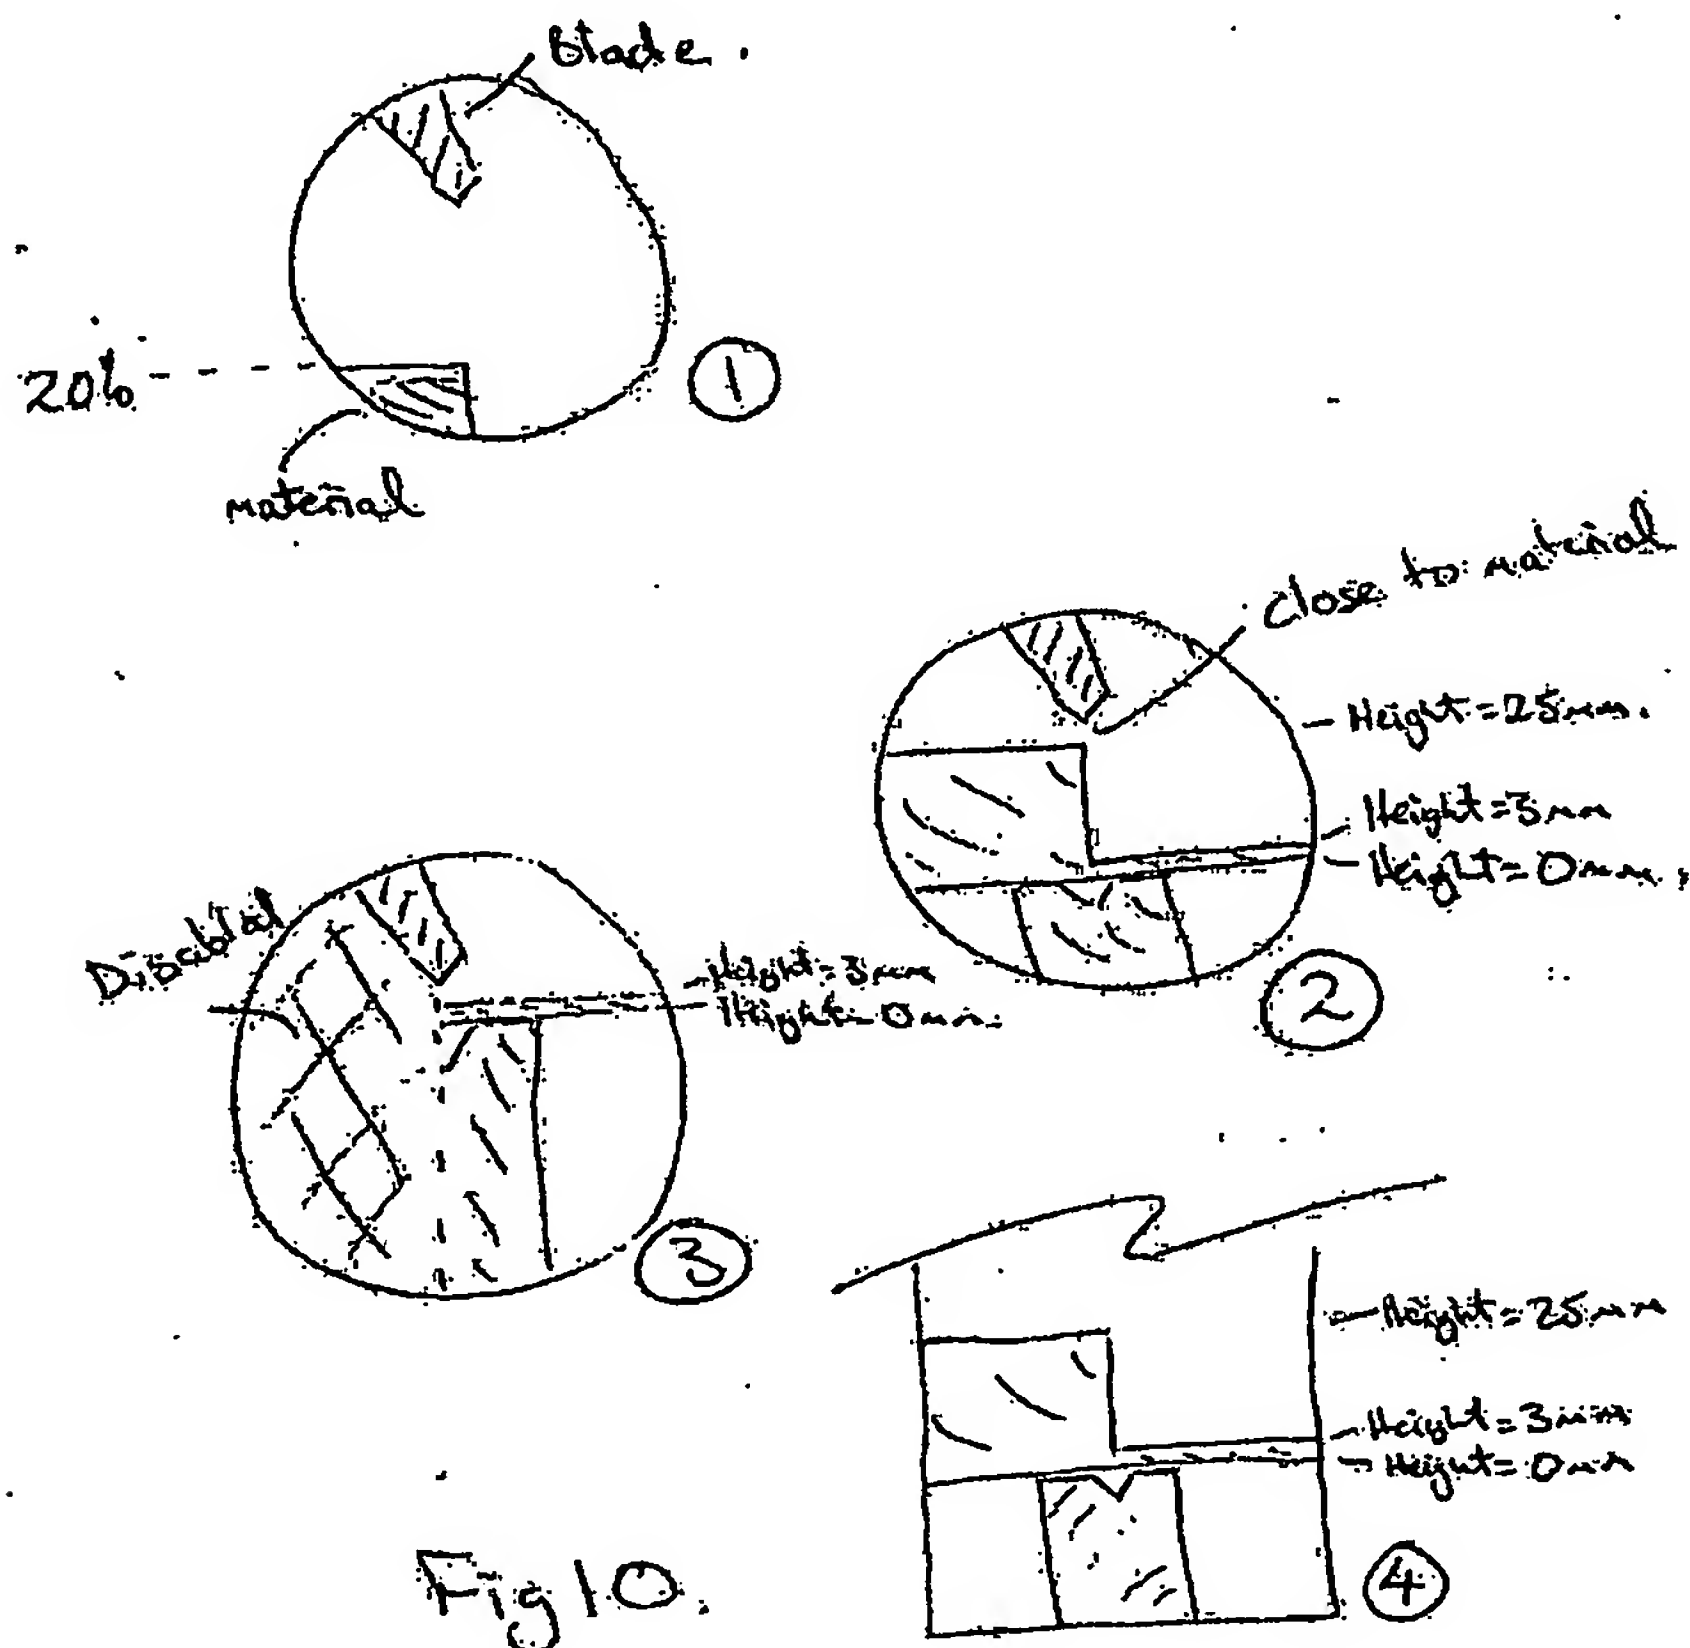 Blade.
20%
①
material
close to material
Height = 25mm.
Height = 3mm
Height = 0mm.
②
Disabled
Height = 3mm
Height = 0mm.
③
Height = 25mm
Height = 3mm
Height = 0mm
④
Fig 10.